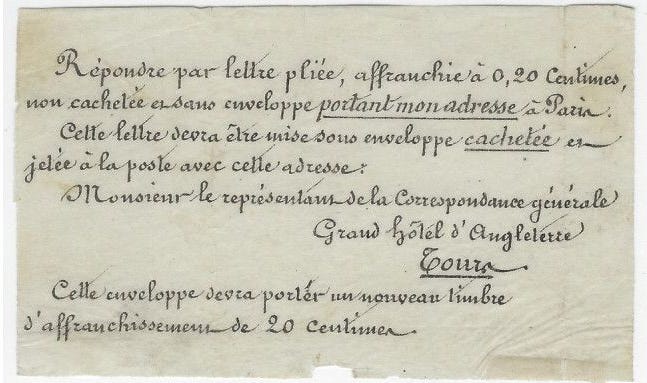 Répondre par lettre pliée, affranchie à 0,20 Centimes,
non cachetée et sans enveloppe portant mon adresse à Paris.
Cette lettre devra être mise sous enveloppe cachetée et
jetée à la poste avec cette adresse :
Monsieur le représentant de la Correspondance générale
Grand hôtel d'Angleterre
Tours
Cette enveloppe devra porter un nouveau timbre
d'affranchissement de 20 centimes.